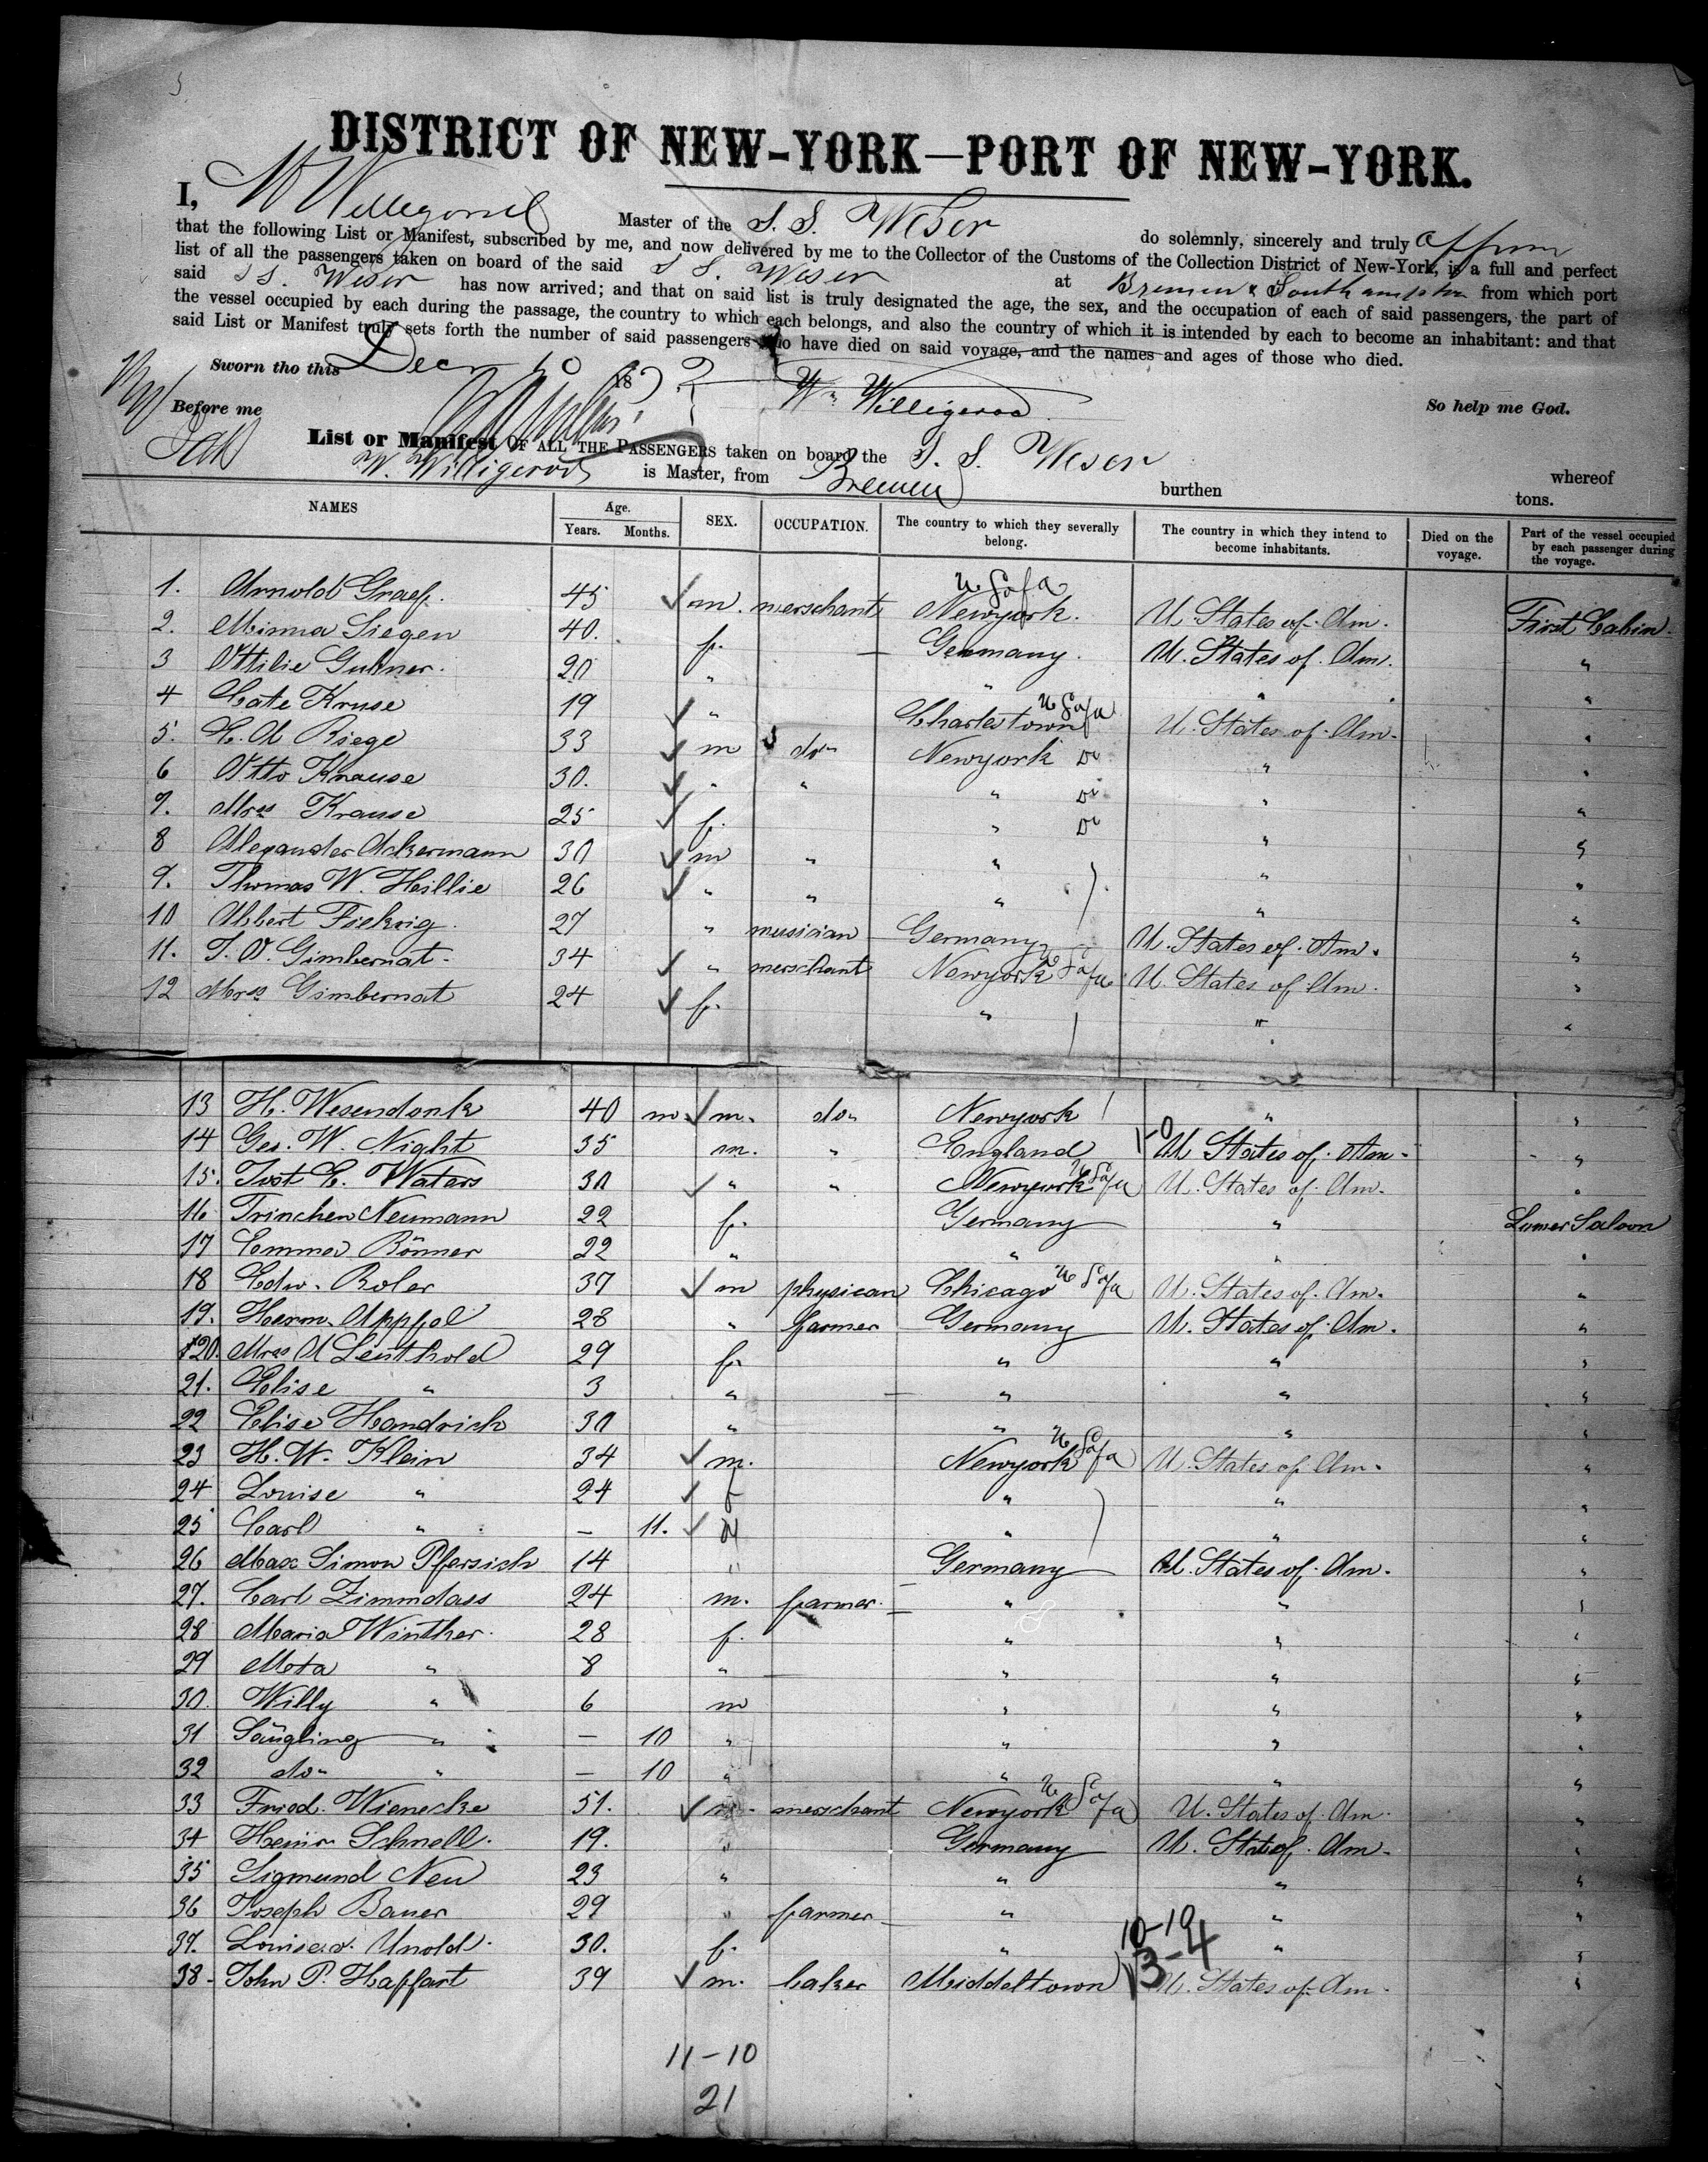 DISTRICT OF NEW-YORK—PORT OF NEW-YORK.
I, Master of the S. S. Weser do solemnly, sincerely and truly affirm
that the following List or Manifest, subscribed by me, and now delivered by me to the Collector of the Customs of the Collection District of New-York, is a full and perfect
list of all the passengers taken on board of the said S S. Weser at Bremen & Southampton from which port
said S S. Weser has now arrived; and that on said list is truly designated the age, the sex, and the occupation of each of said passengers, the part of
the vessel occupied by each during the passage, the country to which each belongs, and also the country of which it is intended by each to become an inhabitant: and that
said List or Manifest truly sets forth the number of said passengers who have died on said voyage, and the names and ages of those who died.
Sworn tho this Decr 18 Wm Willigerod So help me God.
Before me
List or Manifest OF ALL THE PASSENGERS taken on board the S. S. Weser whereof
W. Willigerod is Master, from Bremen burthen tons.
NAMES Age. Years. Months. SEX. OCCUPATION. The country to which they severally belong. The country in which they intend to become inhabitants. Died on the voyage. Part of the vessel occupied by each passenger during the voyage.
U S of a
1. Arnold Graef. 45 m. merschant Newyork. U. States of. Am. First Cabin.
2. Minna Siegen 40. f. — Germany. U. States of. Am. "
3 Ottilie Guhner. 20 " " " "
4 Cate Kruse 19 " Charlestown U S of a U. States of. Am. "
5. C. A Riege 33 m do" Newyork Do " "
6 Otto Krause 30. " " " Do " "
7. Mrss Krause 25 f. " Do " "
8 Alexander Ackermann 30 m " " " "
9. Thomas W. Heillie 26 " " " " "
10 Albert Fiekrig. 27 " musician Germany U. States of. Am. "
11. T. O. Gimbernat. 34 " merschant Newyork U S of a U. States of Am. "
12 Mrss Gimbernat 24 f. " " "
13 H. Wesendonk 40 m. m. do" Newyork " "
14 Geo. W. Night 35 m. " England 1-0 U. States of. Am. "
15. Tost C. Waters 30 " " Newyork U S of a U. States of. Am. "
16 Trinchen Neumann 22 f. Germany " Lower Saloon
17 Emma Bönner 22 " " " "
18 Edw. Roler 37 m physican Chicago U S of a U. States of. Am. "
19. Herm. Appfel 28 " farmer Germany U. States of. Am. "
20. Mrss A Leuthold 29 f. " " "
21. Elise " 3 " — " " "
22 Elise Handrich 30 " " " "
23 H. W. Klein 34 m. Newyork U S of a U. States of Am. "
24 Louise " 24 f " " "
25 Carl " — 11. " " "
26 Max Simon Pfersich 14 " Germany U. States of. Am. "
27. Carl Zimmdass 24 m. farmer. " " "
28 Maria Winther. 28 f. " " "
29 Meta " 8 " " " "
30. Willy " 6 m " " "
31 Säugling " — 10 " " " "
32 do" " — 10 " " " "
33 Fried. Wienecke 51. m. merschant Newyork U S of a U. States of. Am. "
34 Heinr. Schnell. 19. " Germany U. Stat of. Am. "
35 Sigmund Neu 23 " " " "
36 Joseph Bauer 29 " farmer " " "
37. Louise v. Unold. 30. f. " 10-10 " "
38. John P. Haffart 39 m. baker Middeltown 13-4 U. States of Am. "
11-10
21